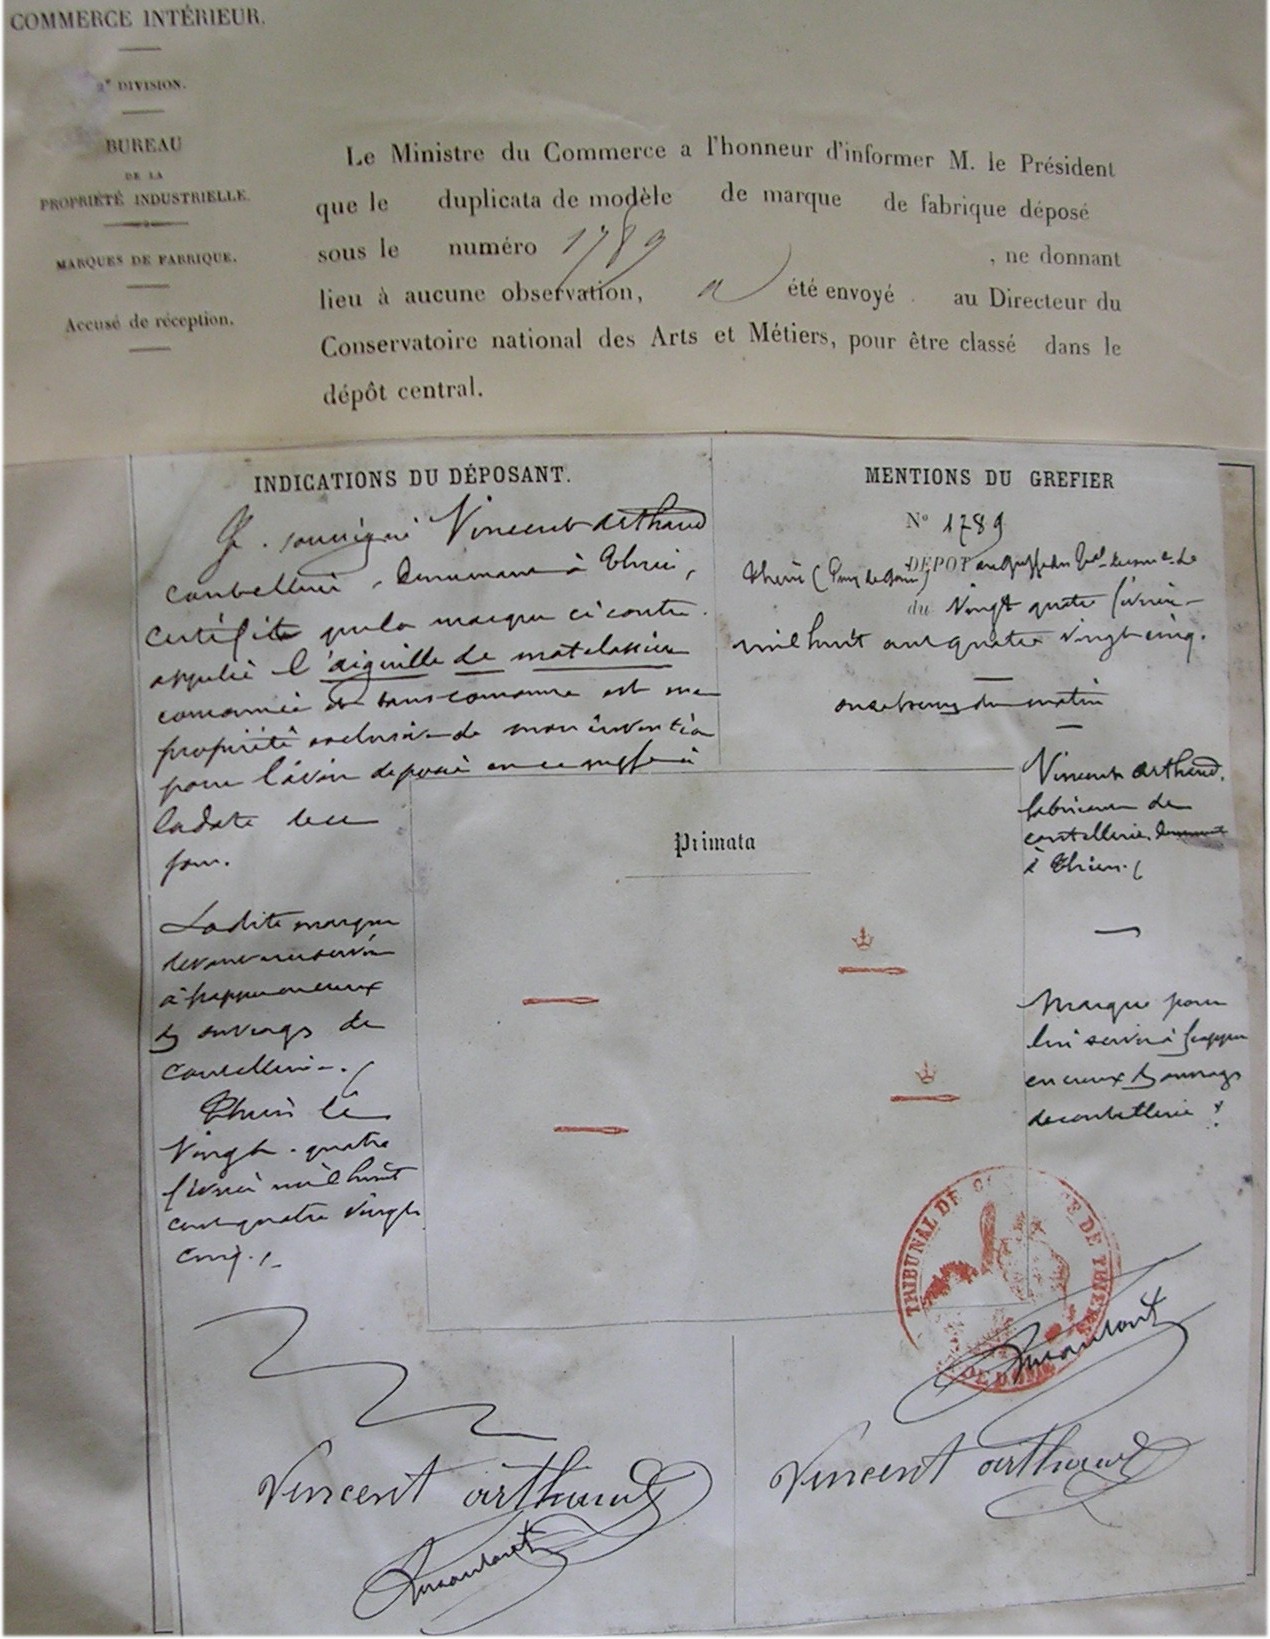 COMMERCE INTÉRIEUR.
2e DIVISION.
BUREAU
DE LA
PROPRIÉTÉ INDUSTRIELLE.
MARQUES DE FABRIQUE.
Accusé de réception.
Le Ministre du Commerce a l'honneur d'informer M. le Président
que le duplicata de modèle de marque de fabrique déposé
sous le numéro 1789 , ne donnant
lieu à aucune observation, a été envoyé au Directeur du
Conservatoire national des Arts et Métiers, pour être classé dans le
dépôt central.
INDICATIONS DU DÉPOSANT.
Je soussigné Vincent Arthaud
coutellier, demeurant à Thiers,
certifie que la marque ci contre
appelée l'aiguille de matelassier
couronnée et sans couronne est ma
propriété exclusive de mon invention
pour l'avoir déposée en ce greffe à
la date de ce
jour.
Ladite marque
devant me servir
à frapper en creux
les ouvrages de
coutellerie.
Thiers le
vingt-quatre
février mil huit
cent quatre vingt
cinq.
MENTIONS DU GREFIER
N° 1789
DÉPOT au Greffe du de
Thiers (Puy de Dôme)
du vingt quatre février
mil huit cent quatre vingt cinq.
onze heures du matin
Primata
Vincent Arthaud,
fabricant de
coutellerie demeurant
à Thiers.
Marque pour
lui servir à frapper
en creux les ouvrages
de coutellerie
TRIBUNAL DE COMMERCE DE THIERS
Vincent arthaud
Vincent arthaud